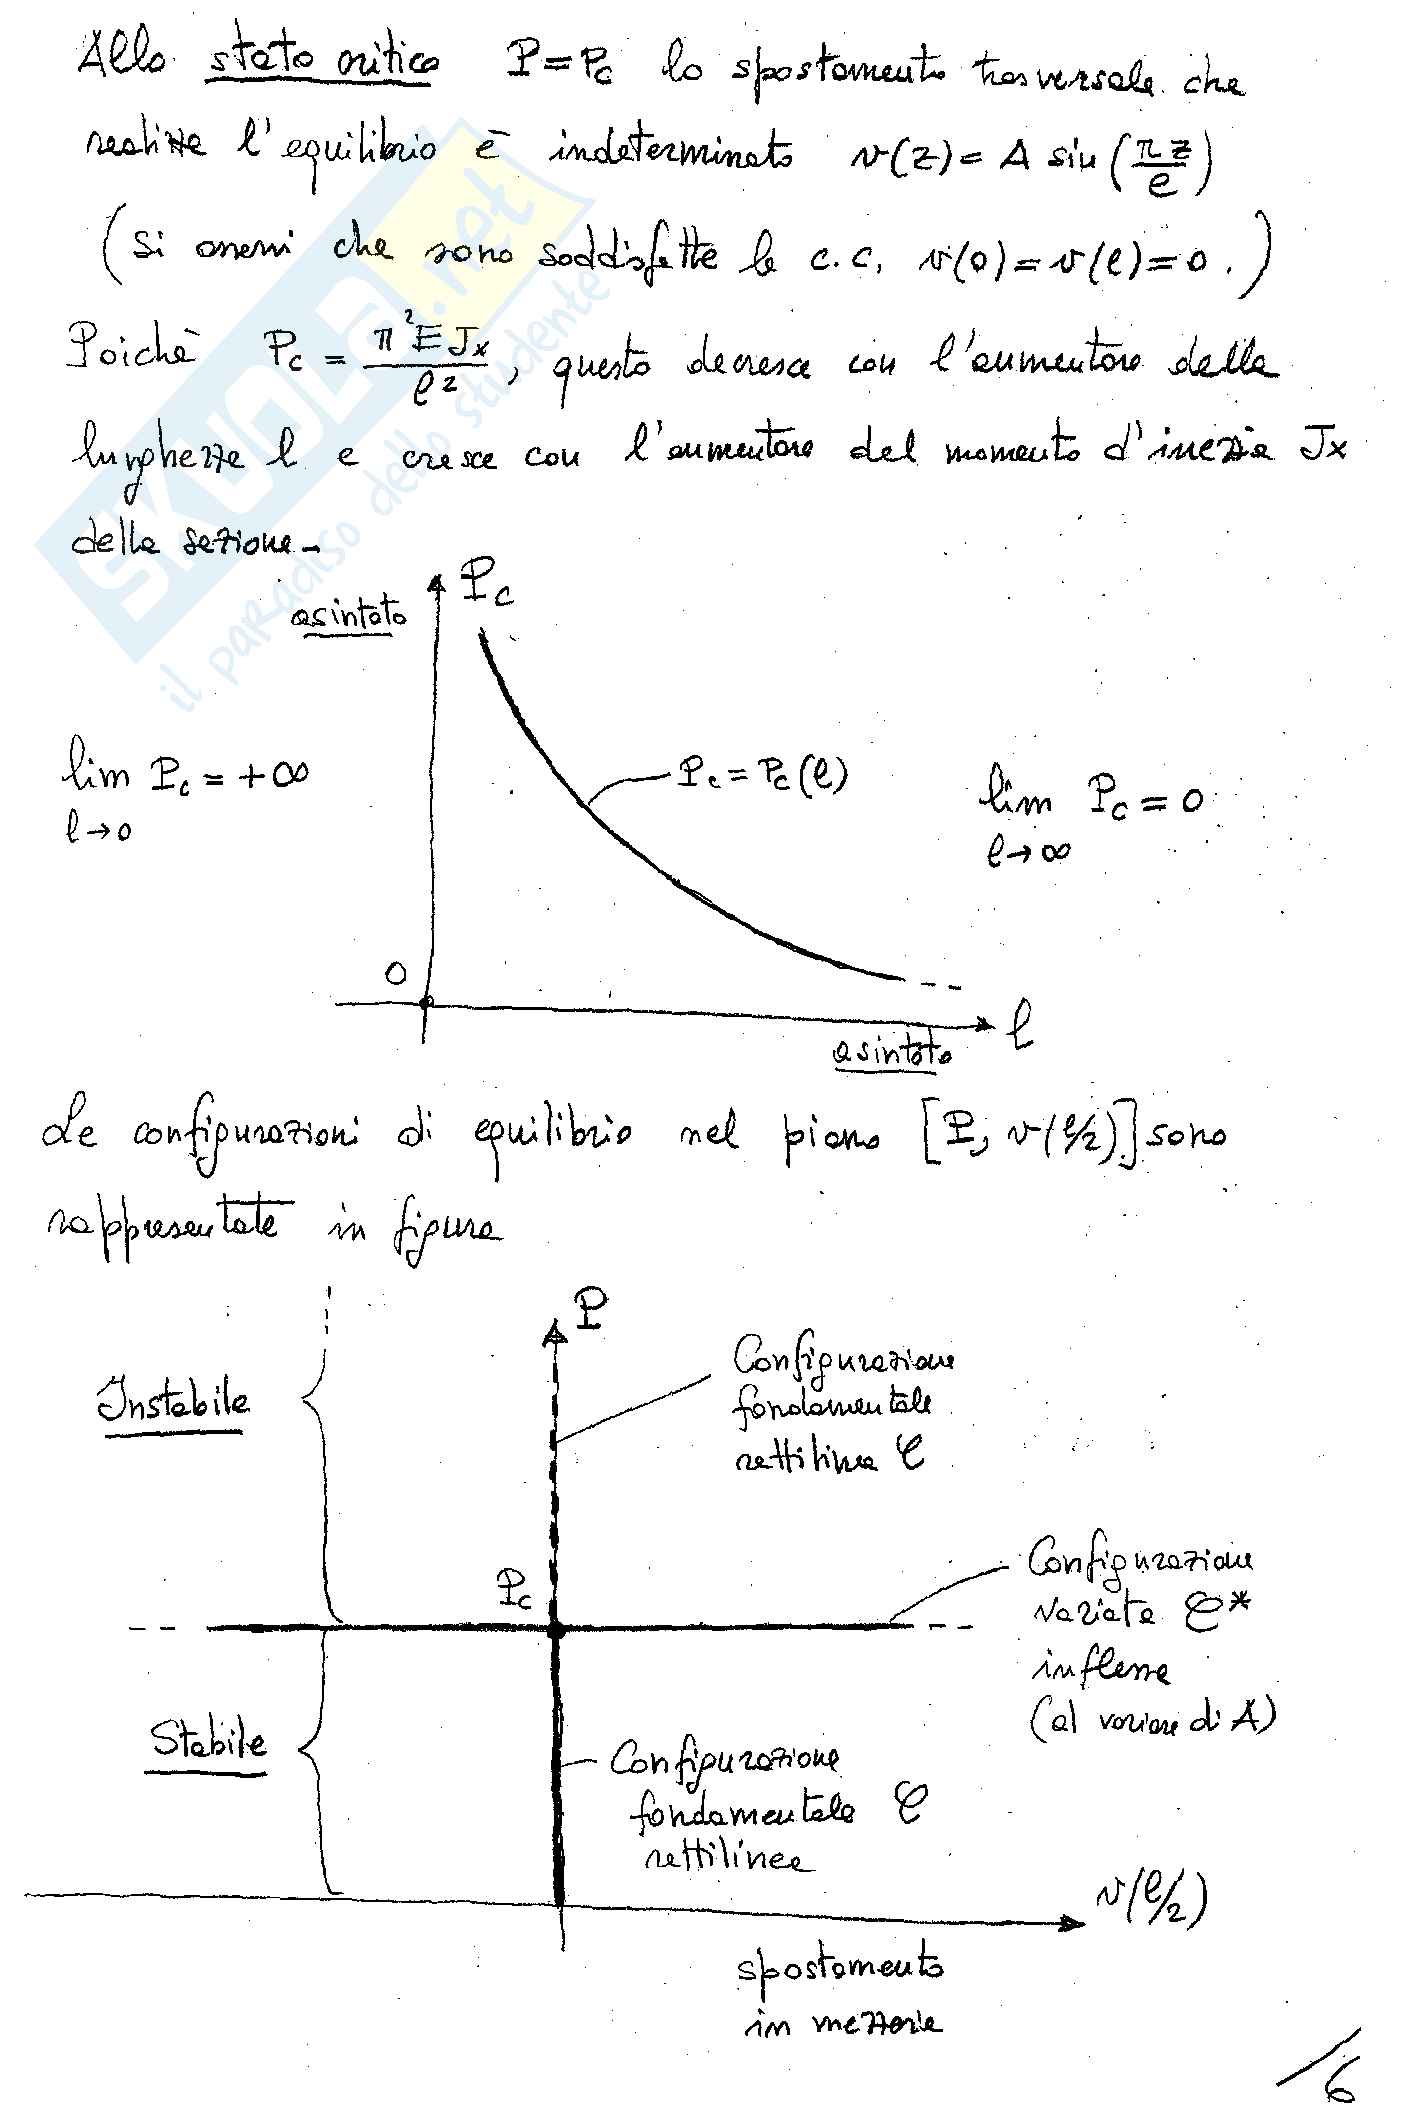 Allo stato critico P = Pc lo spostamento trasversale che
realizza l'equilibrio è indeterminato v(z) = A sin (πz/l)
(Si osservi che sono soddisfatte le c.c. v(0) = v(l) = 0.)
Poichè Pc = π²EJx/l², questo decresce con l'aumentare della
lunghezza l e cresce con l'aumentare del momento d'inerzia Jx
della sezione.
SKUOLA.net
il paradiso dello studente
Pc
asintoto
lim Pc = +∞
l→0
Pc = Pc(l)
lim Pc = 0
l→∞
0
l
asintoto
Le configurazioni di equilibrio nel piano [P, v(l/2)] sono
rappresentate in figura
P
Instabile
Configurazione
fondamentale
rettilinea C
Pc
Configurazione
variata C*
inflessa
(al variare di A)
Stabile
Configurazione
fondamentale C
rettilinea
v(l/2)
spostamento
in mezzeria
/6